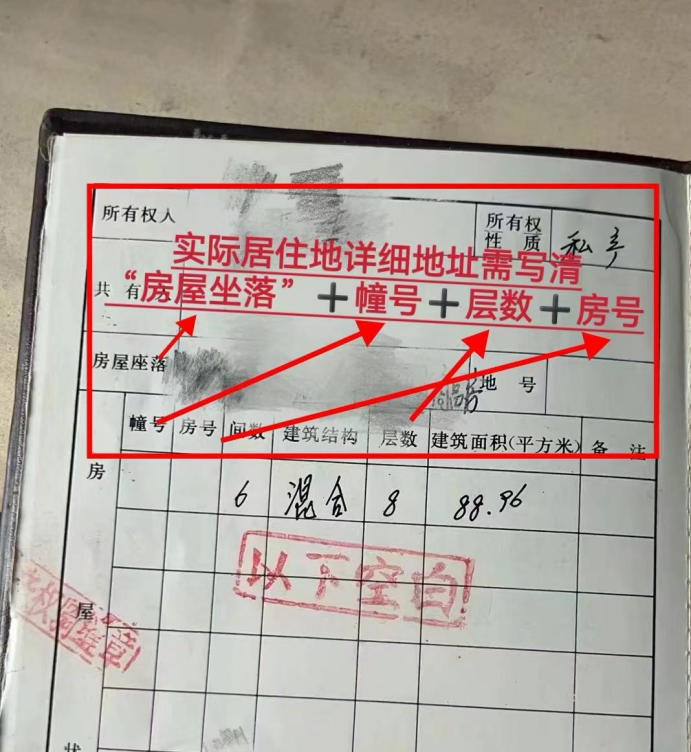 所有权人
所有权性质
私产
实际居住地详细地址需写清
共有
“房屋坐落”➕幢号➕层数➕房号
房屋座落
地号
幢号 房号 间数 建筑结构 层数 建筑面积(平方米) 备注
房
6 混合 8 88.96
以下空白
屋
状